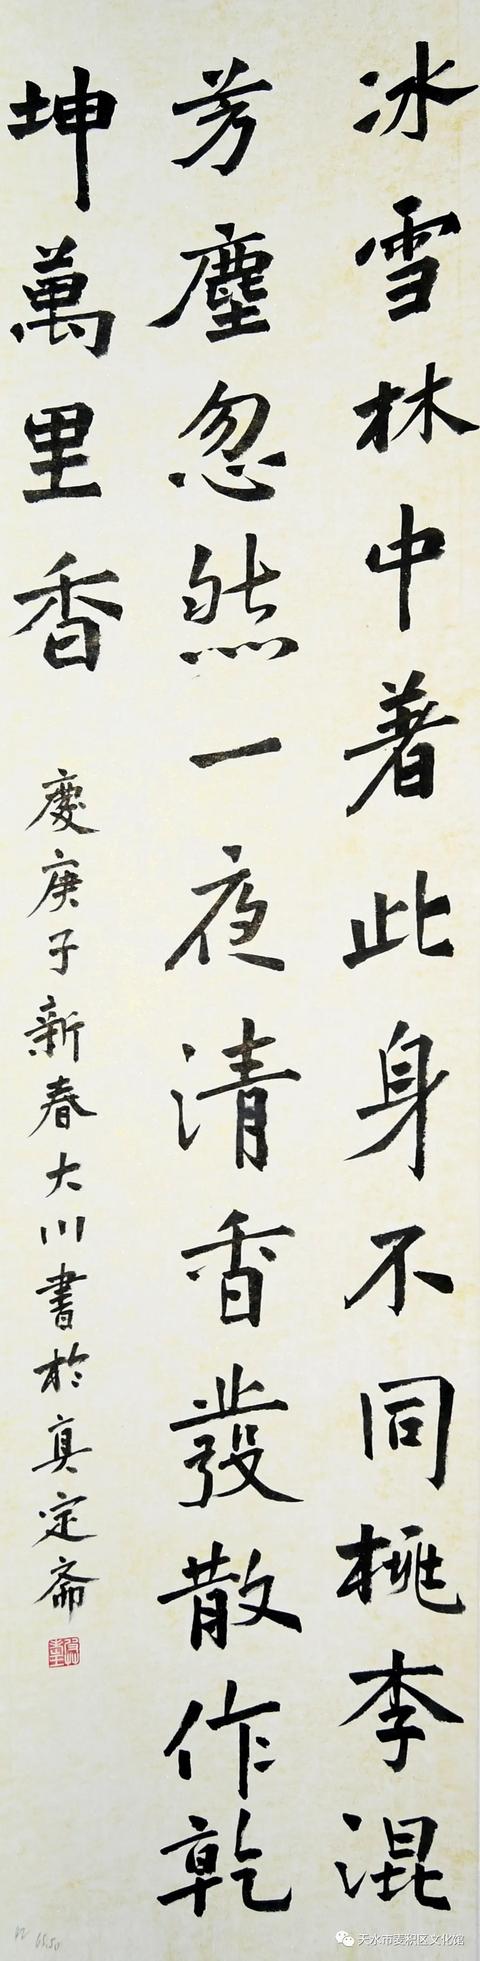 冰雪林中著此身不同桃李混
芳塵忽然一夜清香發散作乾
坤萬里香
慶庚子新春大川書於真定齋
天水市麦积区文化馆